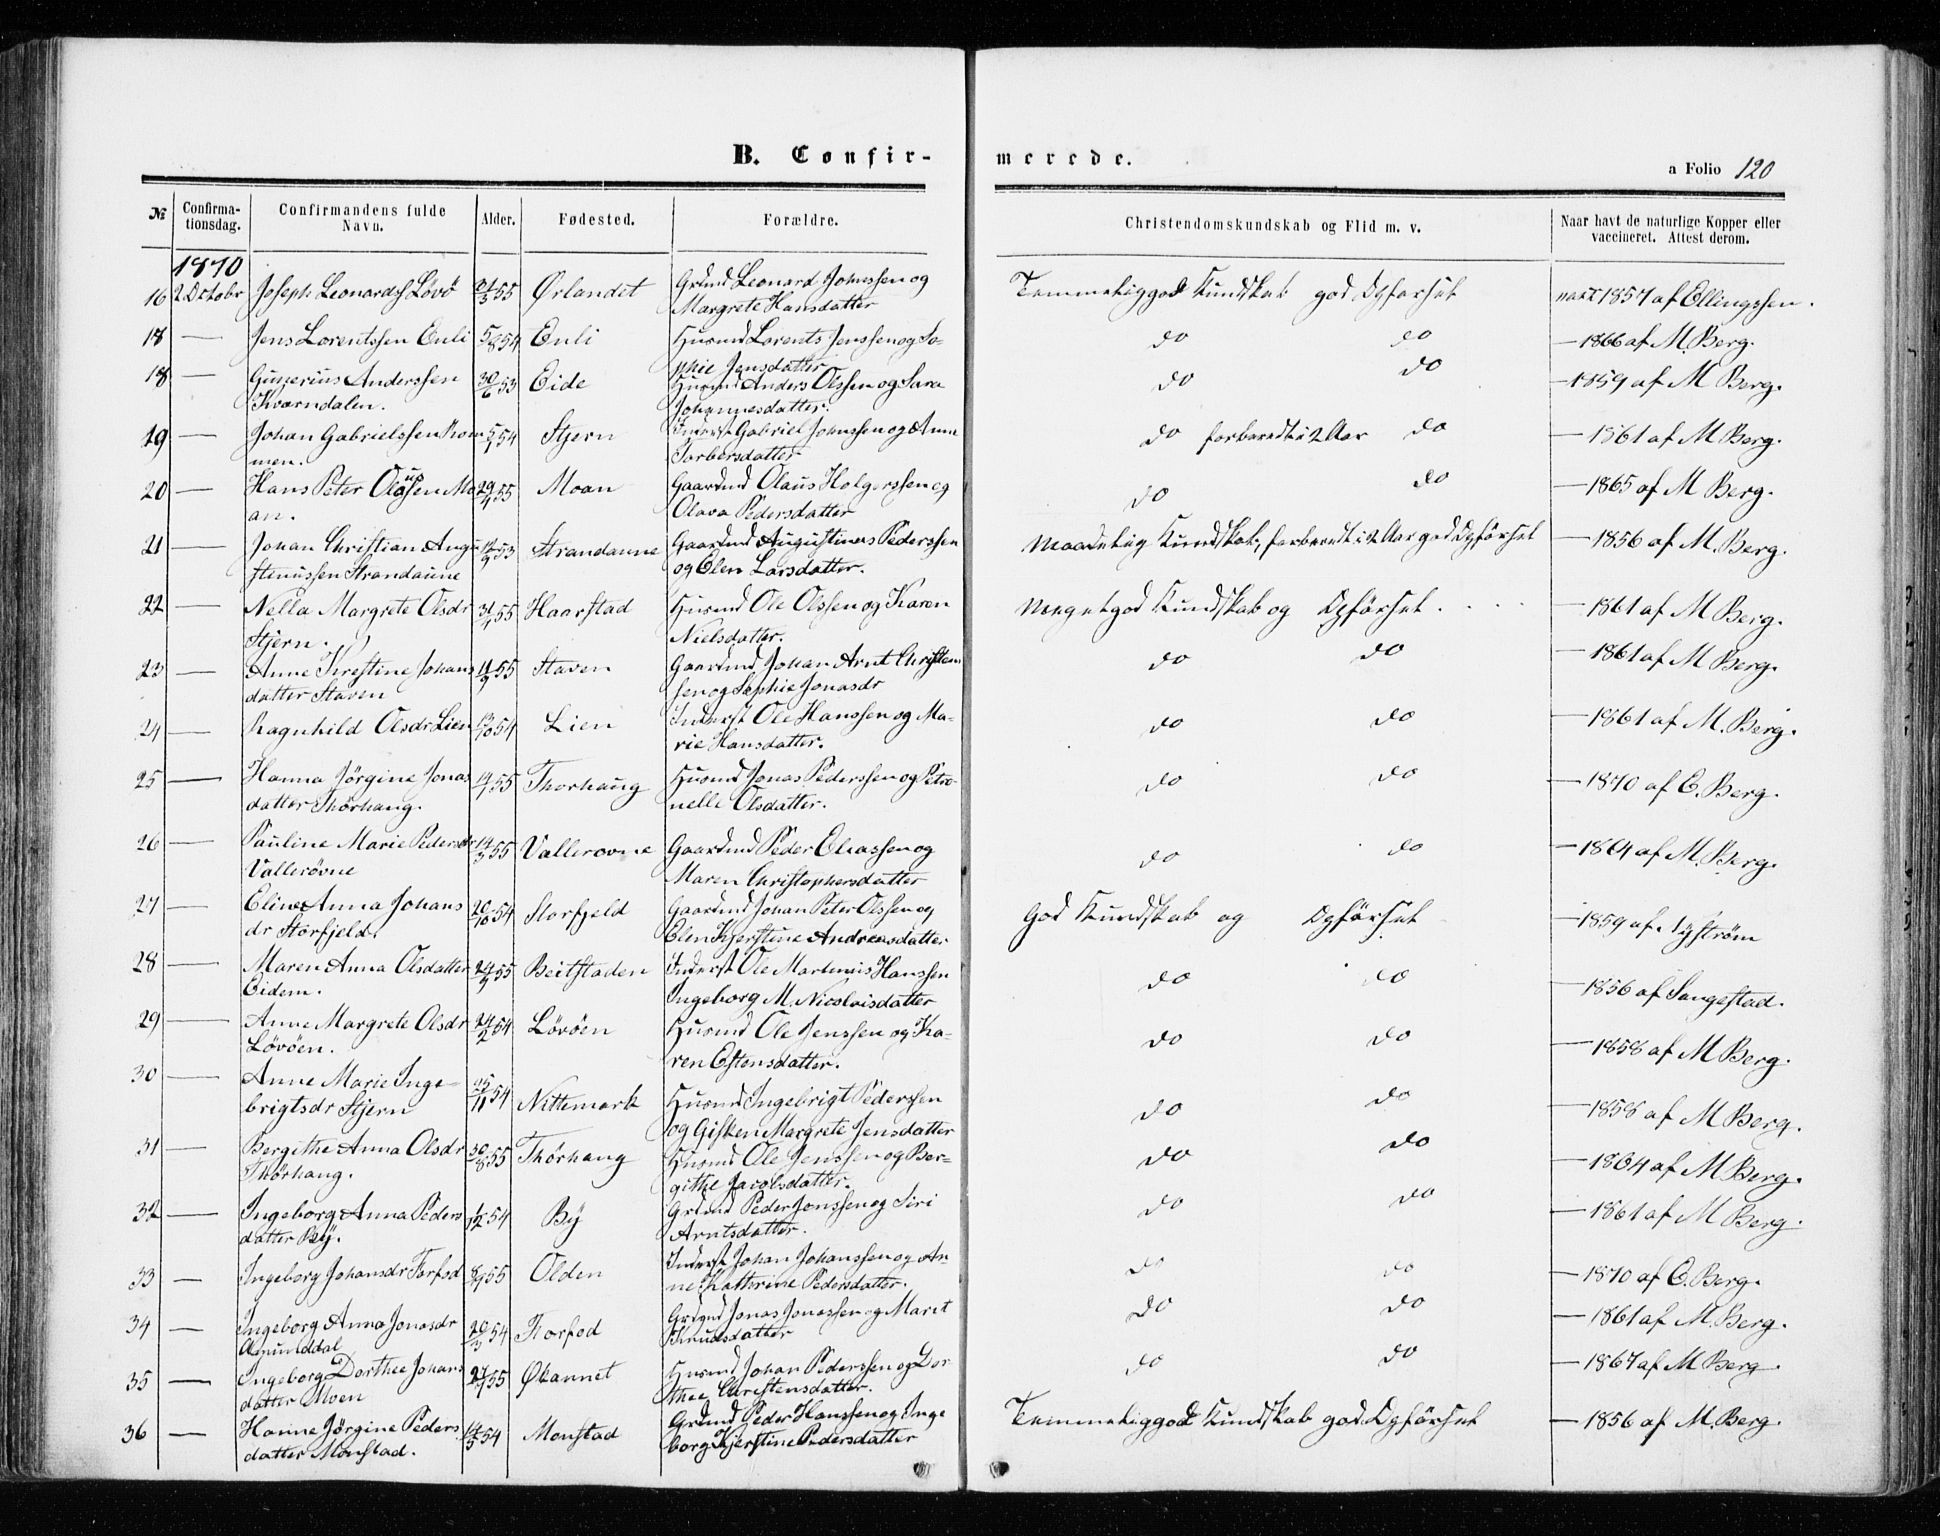 B. Confir-
merede.
a Folio 120
№
Confirma-
tionsdag.
Confirmandens fulde
Navn.
Alder.
Fødested.
Forældre.
Christendomskundskab og Flid m. v.
Naar havt de naturlige Kopper eller
vaccineret. Attest derom.
1870
16 2 October Joseph Leonards Lövö 55 Ørlandet Grdmd Leonard Johnssen og
Margrete Hansdatter
Temmelig god Kundskab god Opförsel
vact 1857 af Ellingssen.
18 — Jens Lorentssen Enli 5/8 54 Enli Husmd Lorents Jenssen og So-
phie Jensdatter
do do — 1866 af M. Berg.
18 — Gunerius Anderssen
Kværndalen.
30/6 53 Eide Husmd Anders Olssen og Sara
Johannesdatter.
do do — 1859 af M Berg.
19 — Johan Gabrielssen Rom
men.
54 Stjern Inderst Gabriel Johnssen og Anne
Torbersdatter
do forberedt i 2 Aar do — 1861 af M Berg.
20 — Hans Peter Olaussen Mo
an.
29/4 55 Moan Gaardmd Olaus Holgerssen og
Olava Pedersdatter
do do — 1865 af M Berg.
21 — Johan Christian Augu
stinussen Strandaune
53 Strandaune Gaardmd Augustinus Pederssen
og Elen Larsdatter.
Maadelig Kundskab, forberedt i 2 Aar god Opförsel — 1856 af M. Berg.
22 — Nella Margrete Olsdr
Stjern.
31/1 55 Haarstad Husmd Ole Olssen og Karen
Nielsdatter.
Meget god Kundskab og Opförsel . . . . — 1861 af M Berg.
23 — Anne Kirstine Johans
datter Staven
55 Staven Gaardmd Johan Arnt Christen
sen og Sophie Jonasdr
do do — 1861 af M Berg.
24 — Ragnhild Olsdr Lien 13/10 54 Lien Inderst Ole Hanssen og Ma-
rie Hansdatter.
do do — 1861 af M. Berg.
25 — Hanna Jörgine Jonas
datter Thörhaug.
14/1 55 Thorhaug Husmd Jonas Pederssen og Petro-
nelle Olsdatter.
do do — 1870 af C. Berg.
26 — Pauline Marie Pedersdr
Vallerövne
14/3 55 Vallerovne Gaardmd Peder Eliassen og
Maren Christophersdatter
do do — 1864 af M. Berg.
27 — Eline Anna Johans
dr Storfjeld.
20/10 54 Storfjeld Gaardmd Johan Peter Olssen og
Elen Kjerstine Andreasdatter
God Kundskab og Opförsel — 1859 af Nyström
28 — Maren Anna Olsdatter
Eidem.
55 Beitstaden Inderst Ole Martinus Hanssen
Ingeborg M. Nicolaisdatter
do do — 1856 af Sangestad.
29 — Anne Margrete Olsdr
Lövöen.
24/2 54 Lövöen Husmd Ole Jenssen og Ka-
ren Estensdatter.
do do — 1858 af M Berg.
30 — Anne Marie Inge-
brigtsdr Stjern
25/11 54 Nittemark Husmd Ingebrigt Pederssen
og Gisken Margrete Jensdatter
do do — 1858 af M Berg.
31 — Bergithe Anna Olsdr
Thörhaug.
30/8 55 Thörhaug Husmd Ole Jenssen og Ber-
githe Jacobsdatter.
do do — 1864 af M Berg.
32 — Ingeborg Anna Peders
datter Bÿ.
1/12 54 Bÿ Grdmd Peder Jonssen og Siri
Arntsdatter.
do do — 1861 af M Berg.
33 — Ingeborg Johansdr Torfod 55 Olden Inderst Johan Johanssen og An-
ne Kathrine Pedersdatter.
do do — 1870 af C. Berg.
34 — Ingeborg Anna Jonasdr
Amunddal
20/3 54 Torfod Grdmd Jonas Jonassen og Marit
Knudsdatter
do do — 1861 af M. Berg.
35 — Ingeborg Dorthee Johans
datter Moen
55 Øbannet Husmd Johan Pederssen og Dor-
thee Christensdatter.
do do — 1867 af M Berg.
36 — Hanne Jörgine Peders
datter Monstad.
14/5 54 Monstad Grdmd Peder Hanssen og Inge
borg Kjerstine Pedersdatter
Temmelig god Kundskab god Opförsel — 1856 af M. Berg.